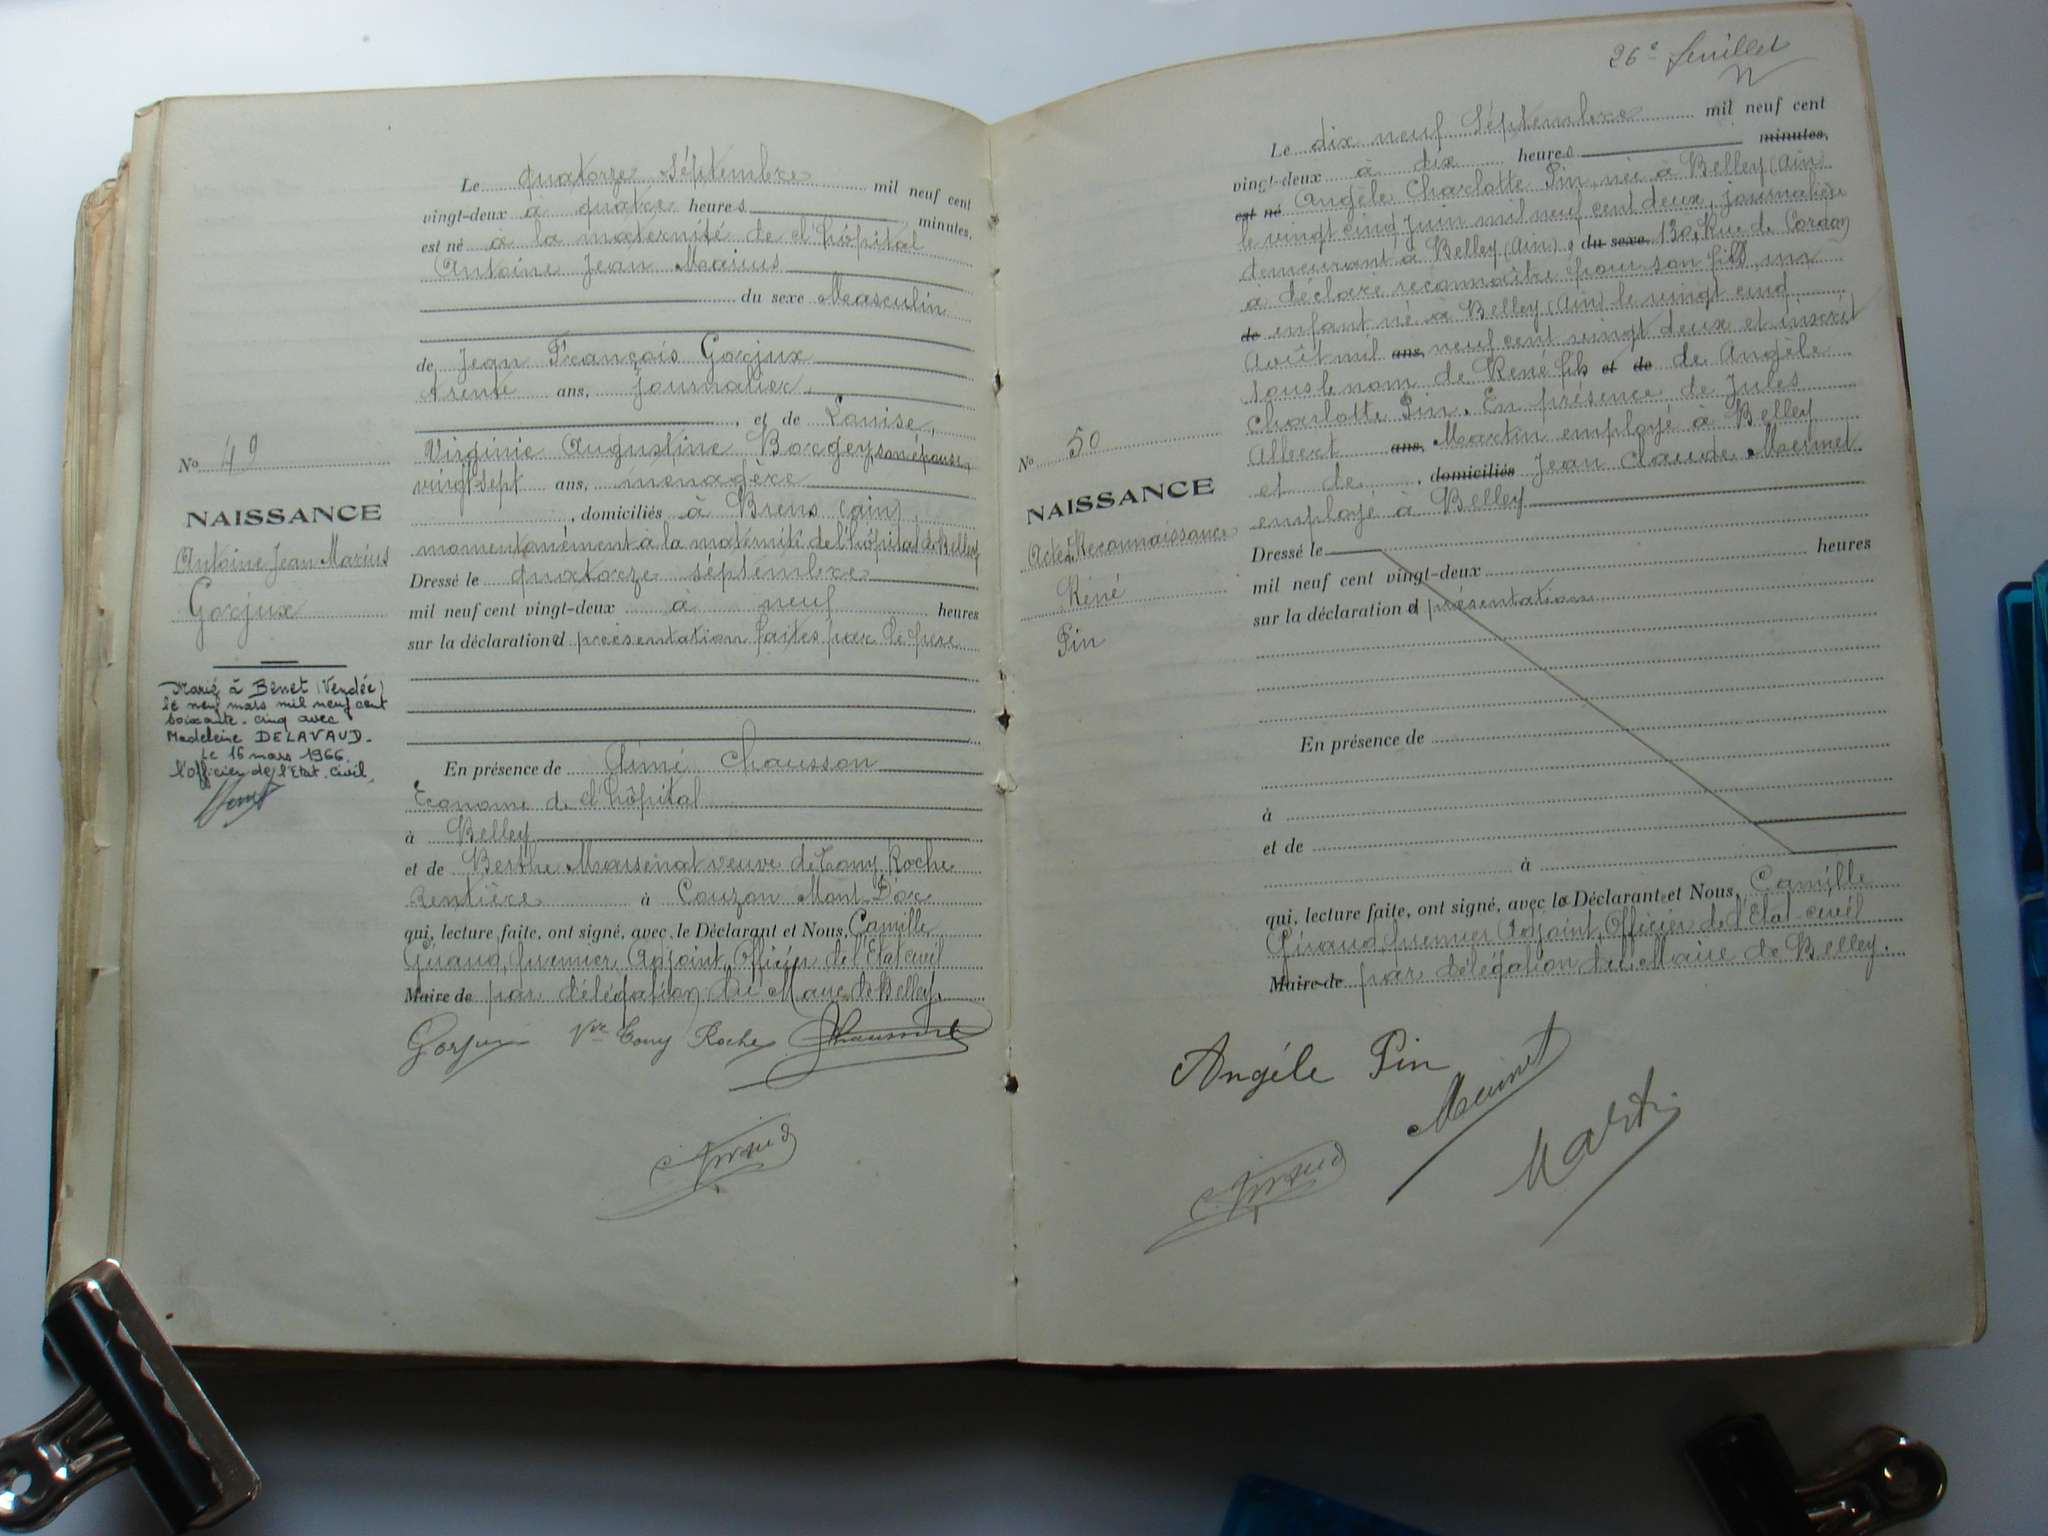 Le quatorze Séptembre mil neuf cent
vingt-deux à quatre heures minutes,
est né à la maternité de l'hôpital
Antoine Jean Marius
du sexe Masculin
de Jean François Gorjux
trente ans, journalier
, et de Louise,
Virginie Augustine Borgey, son épouse,
vingt sept ans, ménagère
, domiciliés à Brens (ain),
momentanément à la maternité de l'hôpital de Belley
Dressé le quatorze séptembre
mil neuf cent vingt-deux à neuf heures
sur la déclaration et présentation faites par le père
En présence de Aimé Chausson
Econome de l'hôpital
à Belley
et de Berthe Marsenat veuve de Tony Roche
rentière à Couzon Mont D'or
qui, lecture faite, ont signé, avec le Déclarant et Nous, Camille
Giraud, premier Adjoint, Officier de l'Etat civil
Maire de par délégation du Maire de Belley.
Gorjux Vve Tony Roche Chausson
C. Giraud
No 49
NAISSANCE
Antoine Jean Marius
Gorjux
Marié à Benet (Vendée)
le neuf mars mil neuf cent
soixante-cinq avec
Madeleine DELAVAUD.
Le 16 mars 1966.
l'officier de l'Etat civil,
26e feuillet
Le dix neuf Séptembre mil neuf cent
vingt-deux à dix heures minutes,
est né Angèle Charlotte Pin, née à Belley (Ain)
le vingt cinq Juin mil neuf cent deux, journalière
demeurant à Belley (Ain), du sexe 130, Rue de Cordon
à déclaré reconnaitre pour son fils, un
de enfant né à Belley (Ain) le vingt cinq
Août mil ans, neuf cent vingt deux et inscrit
sous le nom de René fils et de de Angèle
Charlotte Pin. En présence de Jules
Albert ans, Martin employé à Belley
et de , domiciliés Jean Claude Mermet
employé à Belley
Dressé le
mil neuf cent vingt-deux heures
sur la déclaration et présentation
En présence de
à
et de
à
qui, lecture faite, ont signé, avec la Déclarante et Nous, Camille
Giraud, premier Adjoint, Officier de l'Etat civil
Maire de par délégation du Maire de Belley.
Angéle Pin
Mermet
Martin
C. Giraud
No 50
NAISSANCE
Acte de Reconnaissance
Réné
Pin